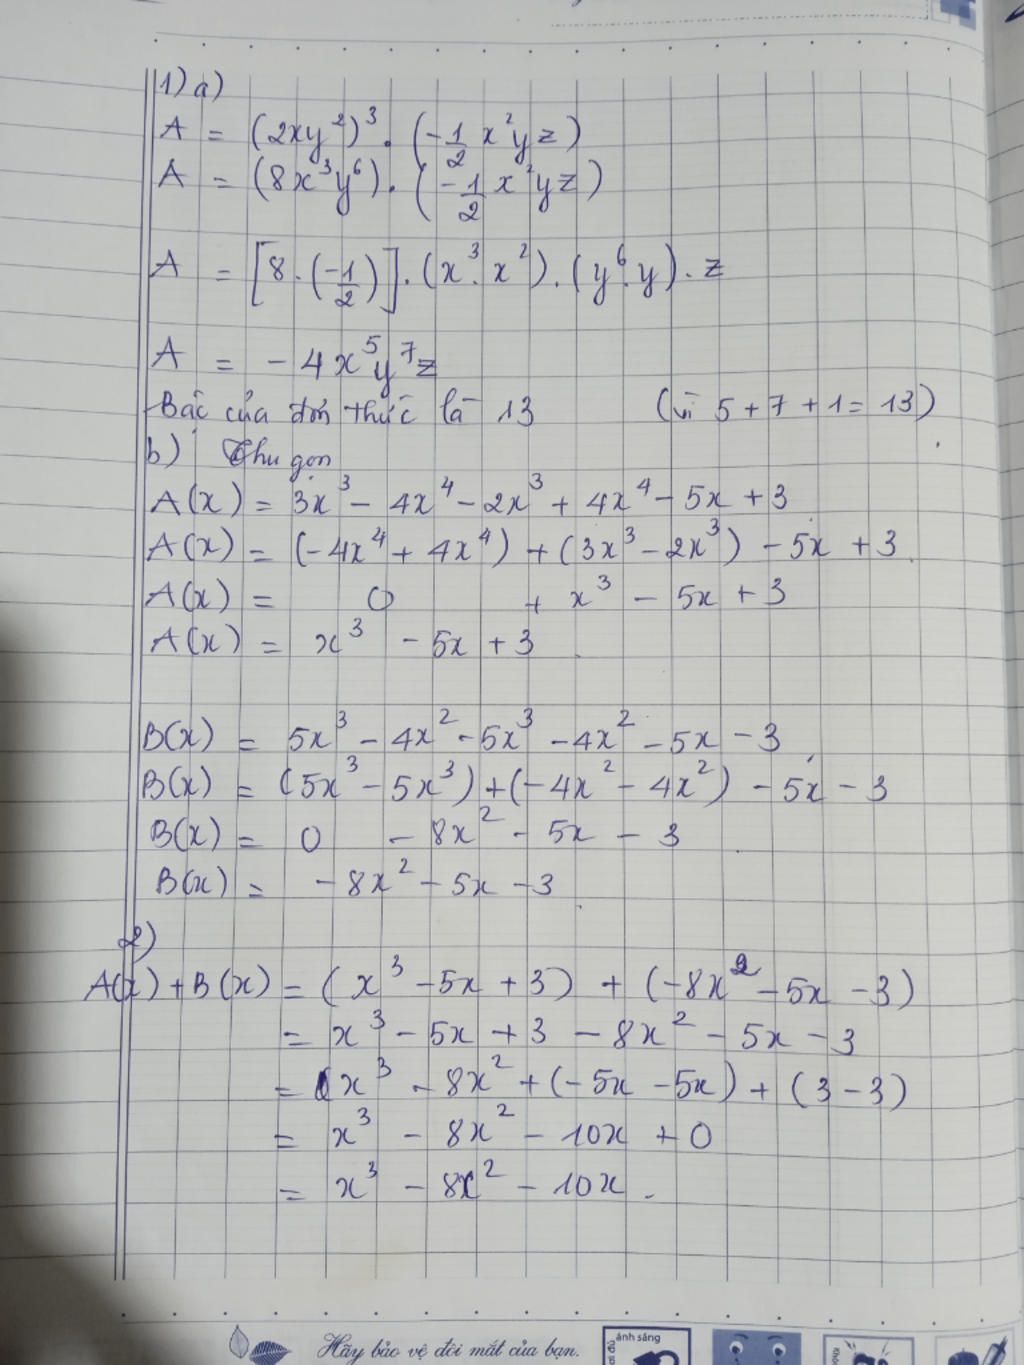 1) a)
A = (2xy²)³ . (-1/2 x²yz)
A = (8x³y⁶) . (-1/2 x²yz)
A = [8 . (-1/2)] . (x³ . x²) . (y⁶ . y) . z
A = -4x⁵y⁷z
Bậc của đơn thức là 13 (vì 5 + 7 + 1 = 13)
b) Thu gọn
A(x) = 3x³ - 4x⁴ - 2x³ + 4x⁴ - 5x + 3
A(x) = (-4x⁴ + 4x⁴) + (3x³ - 2x³) - 5x + 3
A(x) = 0 + x³ - 5x + 3
A(x) = x³ - 5x + 3
B(x) = 5x³ - 4x² - 5x³ - 4x² - 5x - 3
B(x) = (5x³ - 5x³) + (-4x² - 4x²) - 5x - 3
B(x) = 0 - 8x² - 5x - 3
B(x) = -8x² - 5x - 3
2)
A(x) + B(x) = (x³ - 5x + 3) + (-8x² - 5x - 3)
= x³ - 5x + 3 - 8x² - 5x - 3
= x³ - 8x² + (-5x - 5x) + (3 - 3)
= x³ - 8x² - 10x + 0
= x³ - 8x² - 10x .
Hãy bảo vệ đôi mắt của bạn.
ánh sáng